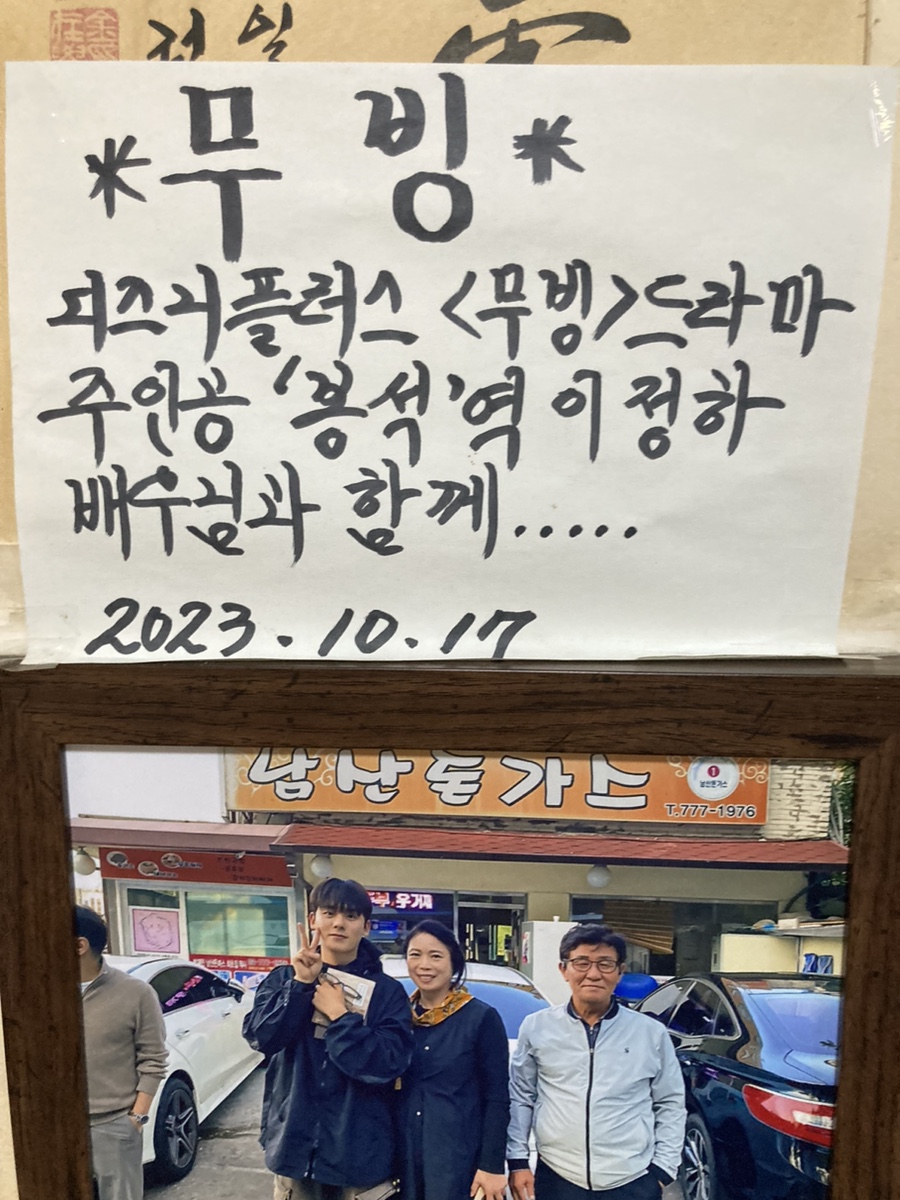 천일
*무빙*
디즈니플러스 <무빙>드라마
주인공 '봉석'역 이정하
배우님과 함께.....
2023.10.17
남산돈가스
남산돈가스
T.777-1976